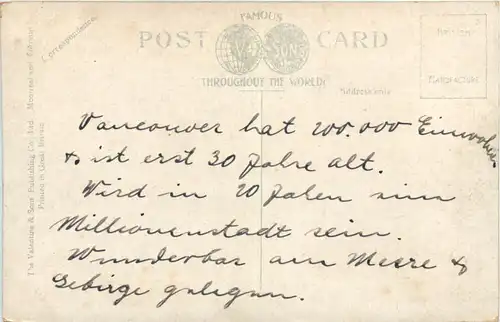 FAMOUS
POST CARD
V & SONS
THROUGHOUT THE WORLD
Correspondence.
Address only
The Valentine & Sons' Publishing Co., Ltd. Montreal and Toronto
Printed in Great Britain
Vancouver hat 200.000 Einwohner
& ist erst 30 Jahre alt.
Wird in 20 Jahren eine
Millionenstadt sein.
Wunderbar am Meere &
Gebirge gelegen.